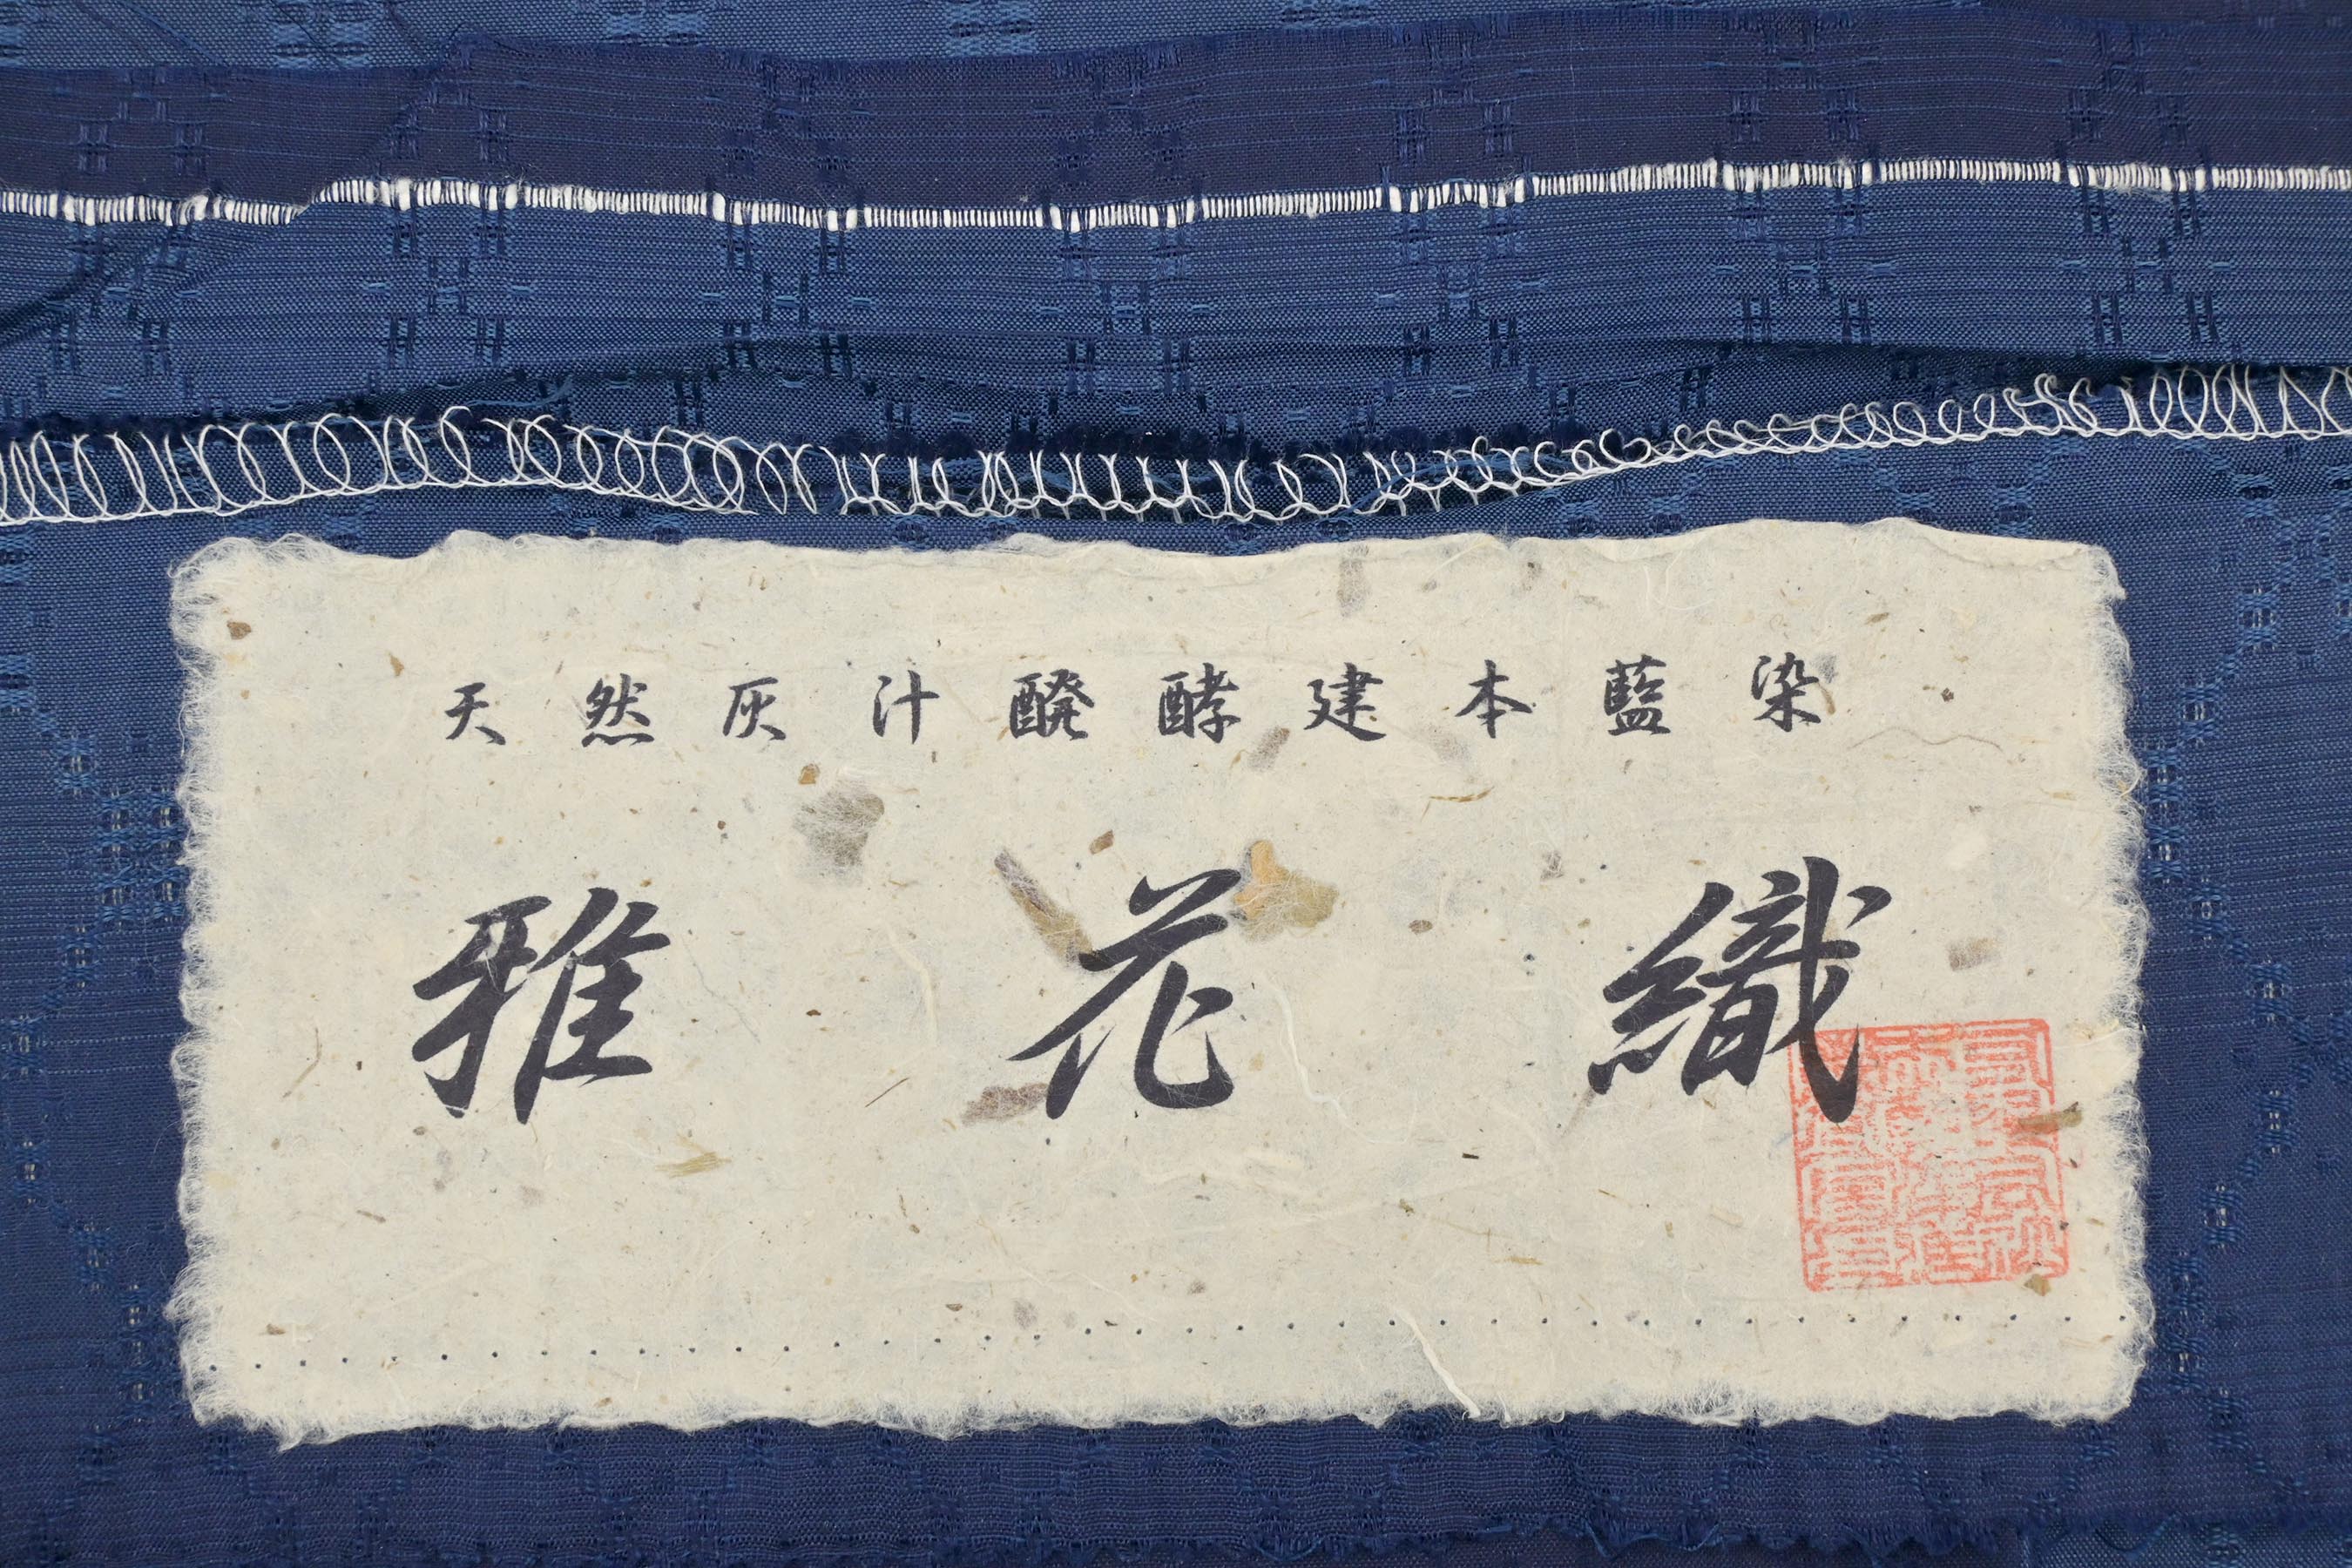 天然灰汁醗酵建本藍染
雅花織